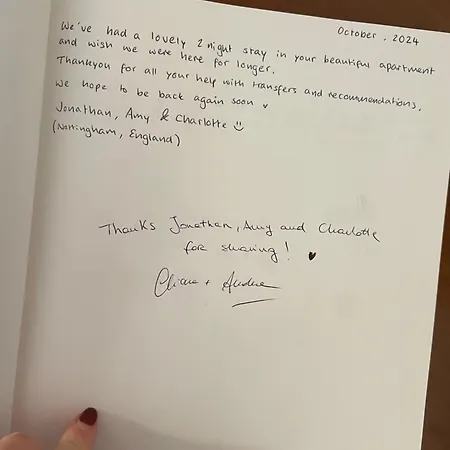 October . 2024
We've had a lovely 2 night stay in your beautiful apartment
and wish we were here for longer.
Thankyou for all your help with transfers and recommendations.
We hope to be back again soon
Jonathan, Amy & Charlotte
(Nottingham, England)
Thanks Jonathan, Amy and Charlotte
for sharing!